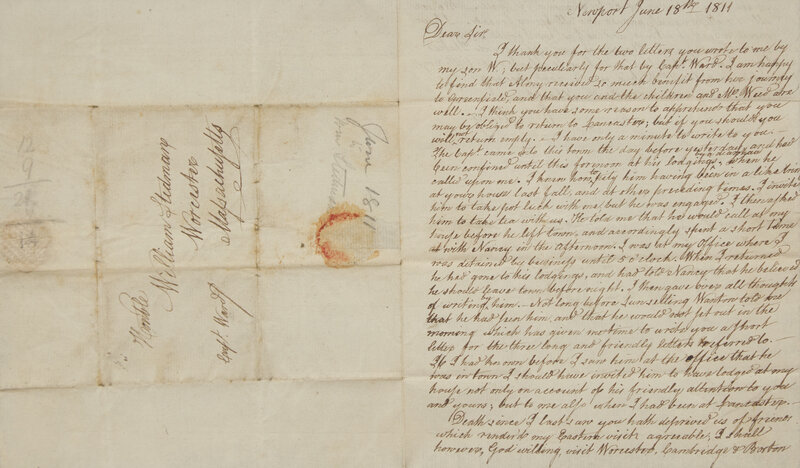 Newport June 18th 1811
Dear Sir.
I thank you for the two letters you wrote to me by
my son W., but peculiarly for that by Capt. Ward. I am happy
to find that Almy received so much benefit from her journey
to Greenfield, and that you and the children and Mr. Weed are
well. I think you have some reason to apprehend that you
may be obliged to return to Lancaster, but if you should you
will not return empty. I have only a minute to write to you.
The Capt. came into this town the day before yesterday, and had
been confined until this forenoon at his lodgings when he
called upon me. I knew him having been
at your house last fall, and at other preceding times. I invited
him to take pot luck with me, but he was engaged. I then asked
him to take tea with us. He told me that he would call at my
house before he left town, and accordingly spent a short time
with Nancy in the afternoon. I was at my office where I
was detained by business until 5 o'clock. When I returned
he had gone to his lodgings, and had told Nancy that he believed
he should leave town before night. I then gave over all thoughts
of writing by him. Not long before Sunsetting Wanton told me
that he had seen him, and that he would not set out in the
morning which has given me time to write you a short
letter for the three long and friendly letters referred to.
If I had known before I saw him at the office that he
was in town I should have invited him to have lodged at my
house not only on account of his friendly attention to you
and yours; but to me also when I had been at Lancaster.
Death since I last saw you hath deprived us of friends
which rendered my Eastern visits agreeable, I shall
however, God willing, visit Worcester, Cambridge & Boston
Honble
William Stedman
Worcester
Massachusetts
Capt Ward
June 1811